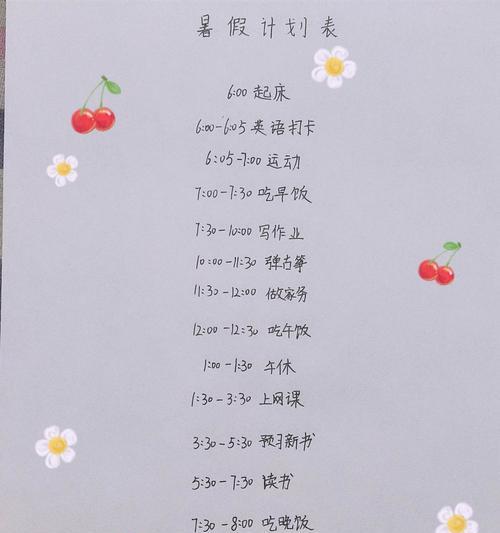 暑假计划表
6:00 起床
6:00-6:05 英语打卡
6:05-7:00 运动
7:00-7:30 吃早饭
7:30-10:00 写作业
10:00-11:30 弹古筝
11:30-12:00 做家务
12:00-12:30 吃午饭
1:00-1:30 午休
1:30-3:30 上网课
3:30-5:30 预习新书
5:30-7:30 读书
7:30-8:00 吃晚饭